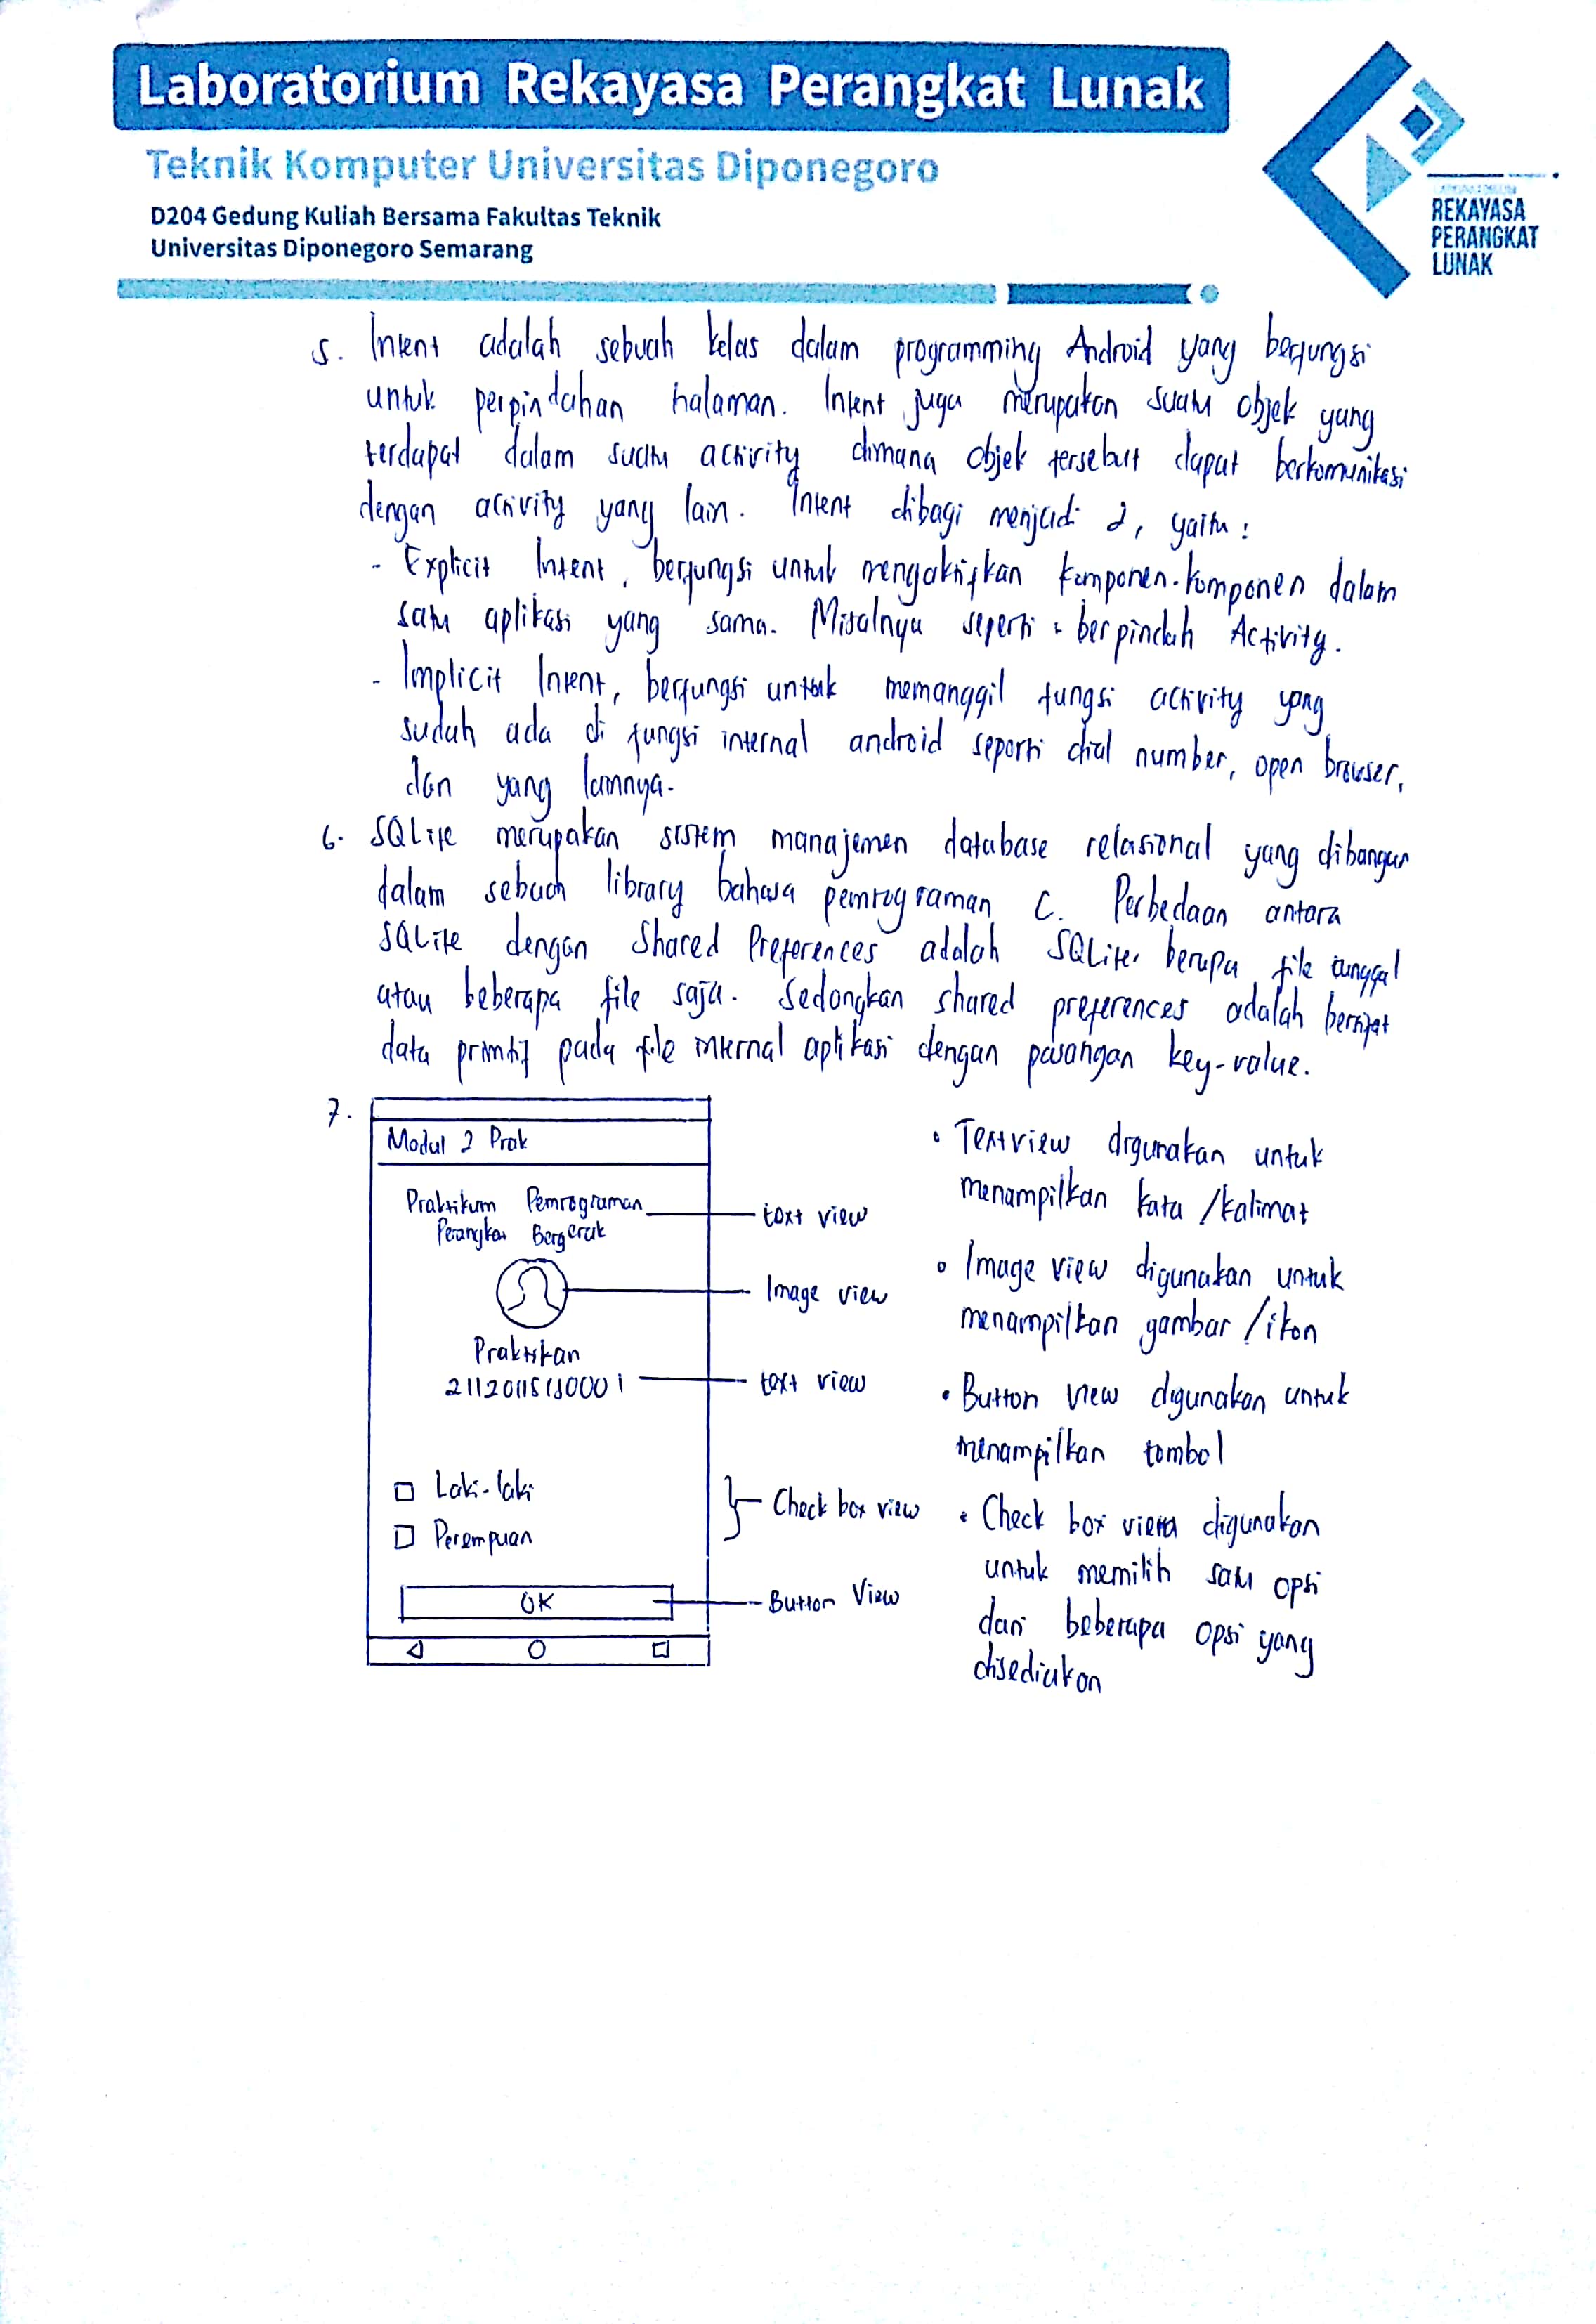 Laboratorium Rekayasa Perangkat Lunak
Teknik Komputer Universitas Diponegoro
D204 Gedung Kuliah Bersama Fakultas Teknik
Universitas Diponegoro Semarang
REKAYASA
PERANGKAT
LUNAK
5. Intent adalah sebuah kelas dalam programming Android yang berfungsi
untuk perpindahan halaman. Intent juga merupakan suatu objek yang
terdapat dalam suatu activity dimana objek tersebut dapat berkomunikasi
dengan activity yang lain. Intent dibagi menjadi 2, yaitu :
- Explicit Intent, berfungsi untuk mengaktifkan komponen-komponen dalam
satu aplikasi yang sama. Misalnya seperti : berpindah Activity.
- Implicit Intent, berfungsi untuk memanggil fungsi activity yang
sudah ada di fungsi internal android seperti dial number, open browser,
dan yang lainnya.
6. SQLite merupakan sistem manajemen database relasional yang dibangun
dalam sebuah library bahasa pemrograman C. Perbedaan antara
SQLite dengan Shared Preferences adalah SQLite berupa file tunggal
atau beberapa file saja. Sedangkan shared preferences adalah bersifat
data primitif pada file internal aplikasi dengan pasangan key-value.
7.
Modul 2 Prak
Praktikum Pemrograman
Perangkat Bergerak
text view
Image view
Praktikan
text view
Laki-laki
Perempuan
Check box view
OK
Button View
• Textview digunakan untuk
menampilkan kata /kalimat
• Image view digunakan untuk
menampilkan gambar /ikon
• Button view digunakan untuk
menampilkan tombol
• Check box view digunakan
untuk memilih satu opsi
dari beberapa opsi yang
disediakan